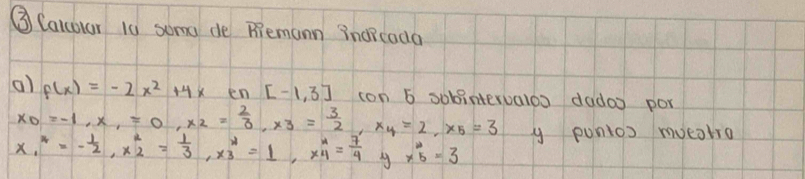 ③ Calcolar la soma de Riemann indicada
a) f(x) = -2x² + 4x en [-1,3] con 5 sobintervalos dados por
x0 = -1, x₁ = 0, x2 = 2/3, x3 = 3/2, x4 = 2, x5 = 3 y puntos muestra
x₁* = -1/2, x2* = 1/3, x3* = 1, x4* = 7/4 y x5* = 3